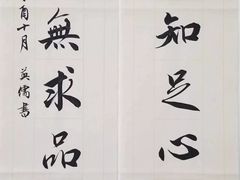 知足心
無求品
酉十月 英儒書